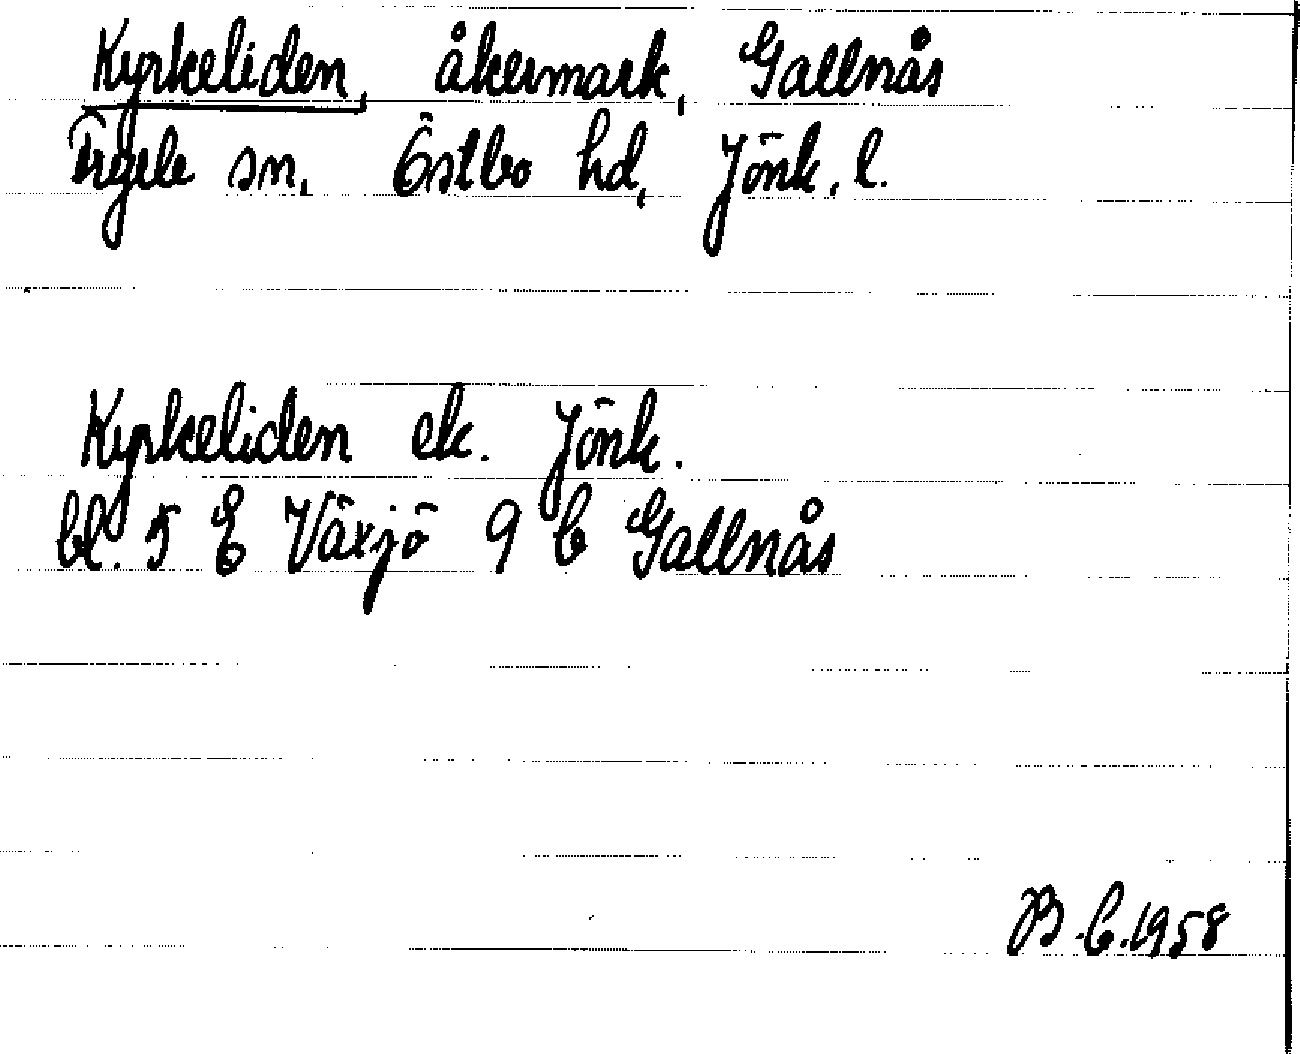 Kyrkeliden, åkermark, Gallnås
Fryele sn, Östbo hd, Jönk. l.
Kyrkeliden ek. Jönk.
bl. 5 E Växjö 9 b Gallnås
B.C. 1958